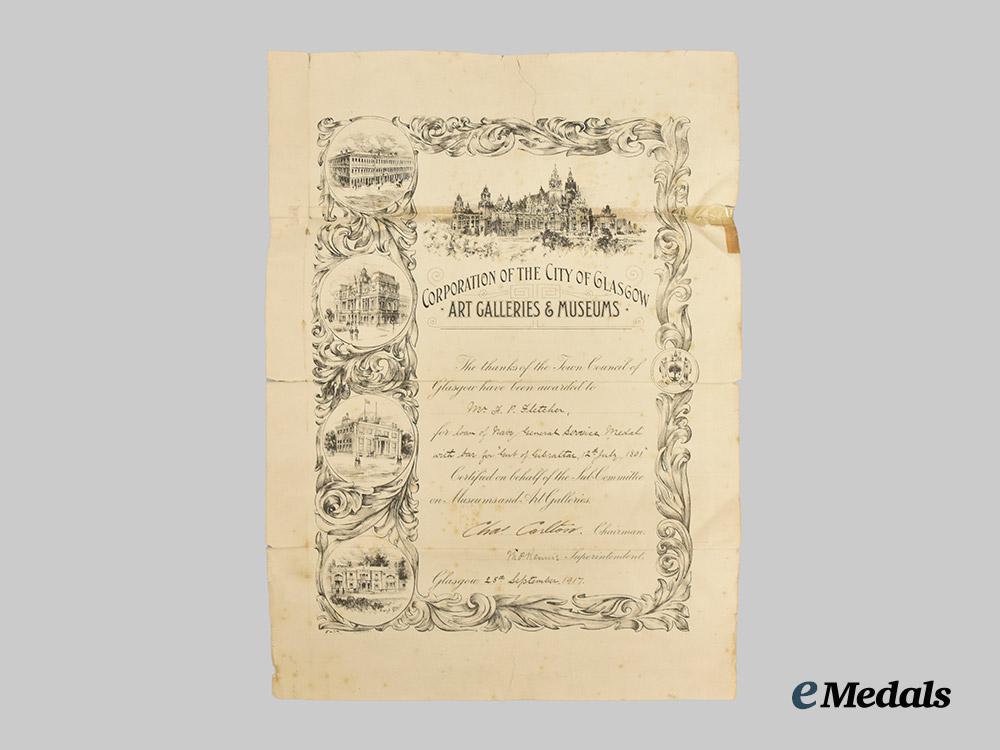 CORPORATION OF THE CITY OF GLASGOW
· ART GALLERIES & MUSEUMS ·
The thanks of the Town Council of
Glasgow have been awarded to
Mr H. P. Fletcher,
for loan of Navy General Service Medal
with bar for "Gut of Gibraltar, 12th July, 1801"
Certified on behalf of the Sub Committee
on Museums and Art Galleries.
Chas Carlton. Chairman.
Superintendent.
Glasgow 25th September, 1917.
eMedals